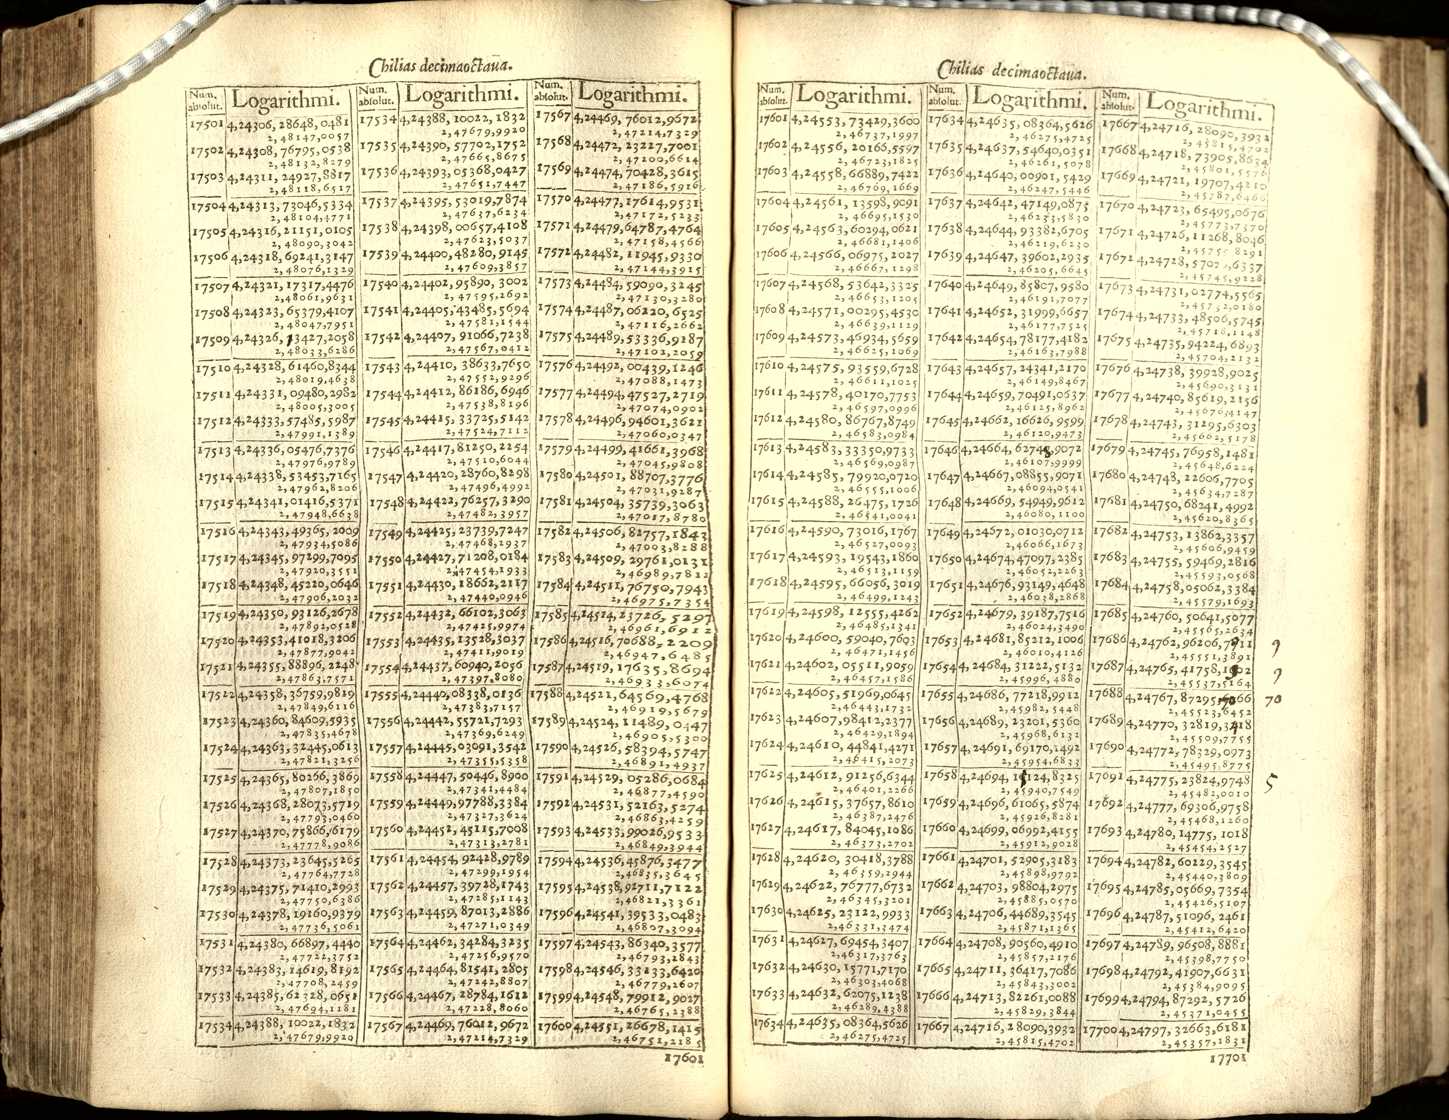 Chilias decimaoctava.
Num. absolut. Logarithmi.
17501 4,24306,28648,0481
2,48147,0057
17502 4,24308,76795,0538
2,48132,8279
17503 4,24311,24927,8817
2,48118,6517
17504 4,24313,73046,5334
2,48104,4771
17505 4,24316,21151,0105
2,48090,3042
17506 4,24318,69241,3147
2,48076,1329
17507 4,24321,17317,4476
2,48061,9631
17508 4,24323,65379,4107
2,48047,7951
17509 4,24326,13427,2058
2,48033,6286
17510 4,24328,61460,8344
2,48019,4638
17511 4,24331,09480,2982
2,48005,3005
17512 4,24333,57485,5987
2,47991,1389
17513 4,24336,05476,7376
2,47976,9789
17514 4,24338,53453,7165
2,47962,8206
17515 4,24341,01416,5371
2,47948,6638
17516 4,24343,49365,2009
2,47934,5086
17517 4,24345,97299,7095
2,47920,3551
17518 4,24348,45220,0646
2,47906,2032
17519 4,24350,93126,2678
2,47892,0528
17520 4,24353,41018,3206
2,47877,9042
17521 4,24355,88896,2248
2,47863,7571
17522 4,24358,36759,9819
2,47849,6116
17523 4,24360,84609,5935
2,47835,4678
17524 4,24363,32445,0613
2,47821,3256
17525 4,24365,80266,3869
2,47807,1850
17526 4,24368,28073,5719
2,47793,0460
17527 4,24370,75866,6179
2,47778,9086
17528 4,24373,23645,5265
2,47764,7728
17529 4,24375,71410,2993
2,47750,6386
17530 4,24378,19160,9379
2,47736,5061
17531 4,24380,66897,4440
2,47722,3752
17532 4,24383,14619,8192
2,47708,2459
17533 4,24385,62328,0651
2,47694,1181
17534 4,24388,10022,1832
2,47679,9920
Num. absolut. Logarithmi.
17534 4,24388,10022,1832
2,47679,9920
17535 4,24390,57702,1752
2,47665,8675
17536 4,24393,05368,0427
2,47651,7447
17537 4,24395,53019,7874
2,47637,6234
17538 4,24398,00657,4108
2,47623,5037
17539 4,24400,48280,9145
2,47609,3857
17540 4,24402,95890,3002
2,47595,2692
17541 4,24405,43485,5694
2,47581,1544
17542 4,24407,91066,7238
2,47567,0412
17543 4,24410,38633,7650
2,47552,9296
17544 4,24412,86186,6946
2,47538,8196
17545 4,24415,33725,5142
2,47524,7112
17546 4,24417,81250,2254
2,47510,6044
17547 4,24420,28760,8298
2,47496,4992
17548 4,24422,76257,3290
2,47482,3957
17549 4,24425,23739,7247
2,47468,2937
17550 4,24427,71208,0184
2,47454,1933
17551 4,24430,18662,2117
2,47440,0946
17552 4,24432,66102,3063
2,47425,9974
17553 4,24435,13528,3037
2,47411,9019
17554 4,24437,60940,2056
2,47397,8080
17555 4,24440,08338,0136
2,47383,7157
17556 4,24442,55721,7293
2,47369,6249
17557 4,24445,03091,3542
2,47355,5358
17558 4,24447,50446,8900
2,47341,4484
17559 4,24449,97788,3384
2,47327,3624
17560 4,24452,45115,7008
2,47313,2781
17561 4,24454,92428,9789
2,47299,1954
17562 4,24457,39728,1743
2,47285,1143
17563 4,24459,87013,2886
2,47271,0349
17564 4,24462,34284,3235
2,47256,9570
17565 4,24464,81541,2805
2,47242,8807
17566 4,24467,28784,1612
2,47228,8060
17567 4,24469,76012,9672
2,47214,7329
Num. absolut. Logarithmi.
17567 4,24469,76012,9672
2,47214,7329
17568 4,24472,23227,7001
2,47200,6614
17569 4,24474,70428,3615
2,47186,5916
17570 4,24477,17614,9531
2,47172,5233
17571 4,24479,64787,4764
2,47158,4566
17572 4,24482,11945,9330
2,47144,3915
17573 4,24484,59090,3245
2,47130,3280
17574 4,24487,06220,6525
2,47116,2662
17575 4,24489,53336,9187
2,47102,2059
17576 4,24492,00439,1246
2,47088,1473
17577 4,24494,47527,2719
2,47074,0902
17578 4,24496,94601,3621
2,47060,0347
17579 4,24499,41661,3968
2,47045,9808
17580 4,24501,88707,3776
2,47031,9287
17581 4,24504,35739,3063
2,47017,8780
17582 4,24506,82757,1843
2,47003,8288
17583 4,24509,29761,0131
2,46989,7812
17584 4,24511,76750,7943
2,46975,7354
17585 4,24514,23726,5297
2,46961,6912
17586 4,24516,70688,2209
2,46947,6485
17587 4,24519,17635,8694
2,46933,6074
17588 4,24521,64569,4768
2,46919,5679
17589 4,24524,11489,0447
2,46905,5300
17590 4,24526,58394,5747
2,46891,4937
17591 4,24529,05286,0684
2,46877,4590
17592 4,24531,52163,5274
2,46863,4259
17593 4,24533,99026,9533
2,46849,3944
17594 4,24536,45876,3477
2,46835,3645
17595 4,24538,92711,7122
2,46821,3361
17596 4,24541,39533,0483
2,46807,3094
17597 4,24543,86340,3577
2,46793,2843
17598 4,24546,33133,6420
2,46779,2607
17599 4,24548,79912,9027
2,46765,2388
17600 4,24551,26678,1415
2,46751,2185
17601
Chilias decimaoctava.
Num. absolut. Logarithmi.
17601 4,24553,73429,3600
2,46737,1997
17602 4,24556,20166,5597
2,46723,1825
17603 4,24558,66889,7422
2,46709,1669
17604 4,24561,13598,9091
2,46695,1530
17605 4,24563,60294,0621
2,46681,1406
17606 4,24566,06975,2027
2,46667,1298
17607 4,24568,53642,3325
2,46653,1205
17608 4,24571,00295,4530
2,46639,1129
17609 4,24573,46934,5659
2,46625,1069
17610 4,24575,93559,6728
2,46611,1025
17611 4,24578,40170,7753
2,46597,0996
17612 4,24580,86767,8749
2,46583,0984
17613 4,24583,33350,9733
2,46569,0987
17614 4,24585,79920,0720
2,46555,1006
17615 4,24588,26475,1726
2,46541,0041
17616 4,24590,73016,1767
2,46527,0093
17617 4,24593,19543,1860
2,46513,1159
17618 4,24595,66056,3019
2,46499,1243
17619 4,24598,12555,4262
2,46485,1341
17620 4,24600,59040,7603
2,46471,1456
17621 4,24602,05511,9059
2,46457,1586
17622 4,24605,51969,0645
2,46443,1732
17623 4,24607,98412,2377
2,46429,1894
17624 4,24610,44841,4271
2,46415,2073
17625 4,24612,91256,6344
2,46401,2266
17626 4,24615,37657,8610
2,46387,2476
17627 4,24617,84045,1086
2,46373,2702
17628 4,24620,30418,3788
2,46359,2944
17629 4,24622,76777,6732
2,46345,3201
17630 4,24625,23122,9933
2,46331,3474
17631 4,24627,69454,3407
2,46317,3763
17632 4,24630,15771,7170
2,46303,4068
17633 4,24632,62075,1238
2,46289,4388
17634 4,24635,08364,5626
2,46275,4725
Num. absolut. Logarithmi.
17634 4,24635,08364,5626
2,46275,4725
17635 4,24637,54640,0351
2,46261,5078
17636 4,24640,00901,5429
2,46247,5446
17637 4,24642,47149,0875
2,46233,5830
17638 4,24644,93382,6705
2,46219,6230
17639 4,24647,39602,2935
2,46205,6645
17640 4,24649,85807,9580
2,46191,7077
17641 4,24652,31999,6657
2,46177,7525
17642 4,24654,78177,4182
2,46163,7988
17643 4,24657,24341,2170
2,46149,8467
17644 4,24659,70491,0637
2,46125,8962
17645 4,24662,16626,9599
2,46120,9473
17646 4,24664,62748,9072
2,46107,9999
17647 4,24667,08855,9071
2,46094,0541
17648 4,24669,54949,9612
2,46080,1100
17649 4,24672,01030,0712
2,46066,1673
17650 4,24674,47097,2385
2,46052,2263
17651 4,24676,93149,4648
2,46038,2868
17652 4,24679,39187,7516
2,46024,3490
17653 4,24681,85212,1006
2,46010,4126
17654 4,24684,31222,5132
2,45996,4880
17655 4,24686,77218,9912
2,45982,5448
17656 4,24689,23201,5360
2,45968,6132
17657 4,24691,69170,1492
2,45954,6833
17658 4,24694,15124,8325
2,45940,7549
17659 4,24696,61065,5874
2,45926,8281
17660 4,24699,06992,4155
2,45912,9028
17661 4,24701,52905,3183
2,45898,9792
17662 4,24703,98804,2975
2,45885,0570
17663 4,24706,44689,3545
2,45871,1365
17664 4,24708,90560,4910
2,45857,2176
17665 4,24711,36417,7086
2,45843,3002
17666 4,24713,82261,0088
2,45829,3844
17667 4,24716,28090,3932
2,45815,4702
Num. absolut. Logarithmi.
17667 4,24716,28090,3932
2,45815,4702
17668 4,24718,73905,8634
2,45801,5576
17669 4,24721,19707,4210
2,45787,6466
17670 4,24723,65495,0676
2,45773,7370
17671 4,24726,11268,8046
8291
17672 4,24728,6337
2,45745,9228
17673 4,24731,02774,5565
2,45732,0180
17674 4,24733,48506,5745
2,45718,1148
17675 4,24735,94224,6893
2,45704,2132
17676 4,24738,39928,9025
2,45690,3131
17677 4,24740,85619,2156
2,45676,4147
17678 4,24743,31295,6303
2,45602,5178
17679 4,24745,76958,1481
2,45648,6224
17680 4,24748,22606,7705
2,45634,7287
17681 4,24750,68241,4992
2,45620,8365
17682 4,24753,13862,3357
2,45606,9459
17683 4,24755,59469,2816
2,45593,0568
17684 4,24758,05062,3384
2,45579,1693
17685 4,24760,50641,5077
2,45565,2634
17686 4,24762,96206,7911 9
2,45551,3891
17687 4,24765,41758,1902 9
2,45537,5164
17688 4,24767,87295,7066 70
2,45523,6452
17689 4,24770,32819,3418
2,45509,7755
17690 4,24772,78329,0973
2,45495,8775
17691 4,24775,23824,9748 5
2,45482,0010
17692 4,24777,69306,9758
2,45468,1260
17693 4,24780,14775,1018
2,45454,2527
17694 4,24782,60229,3545
2,45440,3809
17695 4,24785,05669,7354
2,45426,5107
17696 4,24787,51096,2461
2,45412,6420
17697 4,24789,96508,8881
2,45398,7750
17698 4,24792,41907,6631
2,45384,9095
17699 4,24794,87292,5726
2,45371,0455
17700 4,24797,32663,6181
2,45357,1831
17701